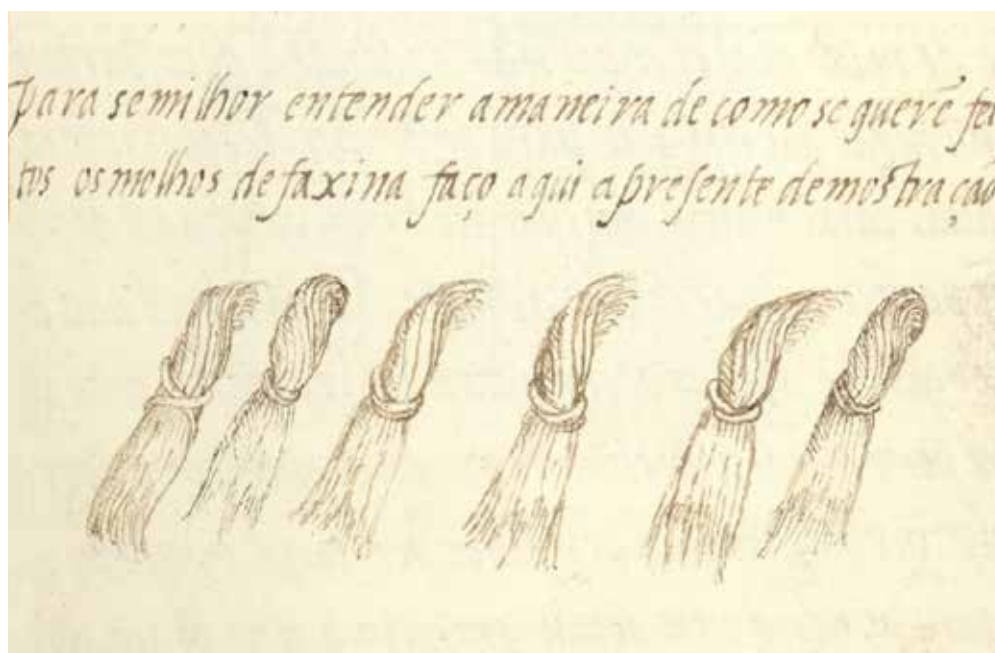 para semilhor entender amaneira de como se querẽ fei
tos os molhos de faxina faço aqui apresente demostração